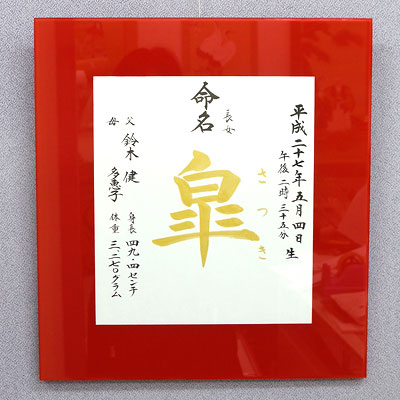 平成二十七年五月四日 生
午後二時三十五分
長女
命名
さつき
皐
父 鈴木 健
母 多恵子
身長 四九・四センチ
体重 三、二七〇グラム